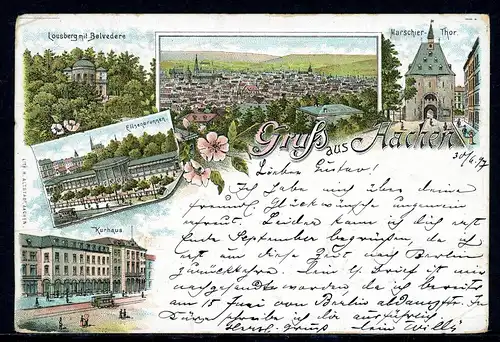 Lousberg mit Belvedere
Marschier-Thor.
Elisenbrunnen
Gruß aus Aachen
30/6.97
Kurhaus
Lieber Gustav!
Ich habe mich über deine
freundl. Glückwünsche ungemein
erfreut. Leider kann ich dich erst
Ende September begrüßen, da ich
erst um diese Zeit nach Berlin
zurückkehre. Dein l. Brief ist mir
nachgesandt worden, da ich bereits
am 15 Juni von Berlin abdampfte. In
Kürze schreibe ich dir ausführlich.
Herzl. Gruss dein Willy